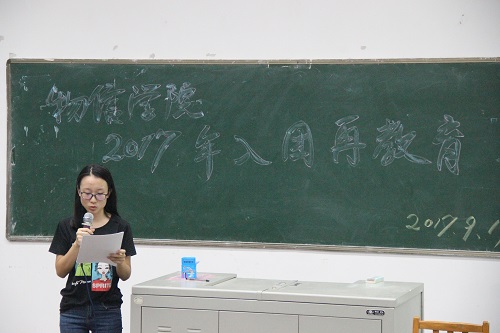 物信学院
2017年入团再教育
2017.9.1
SPIRIT